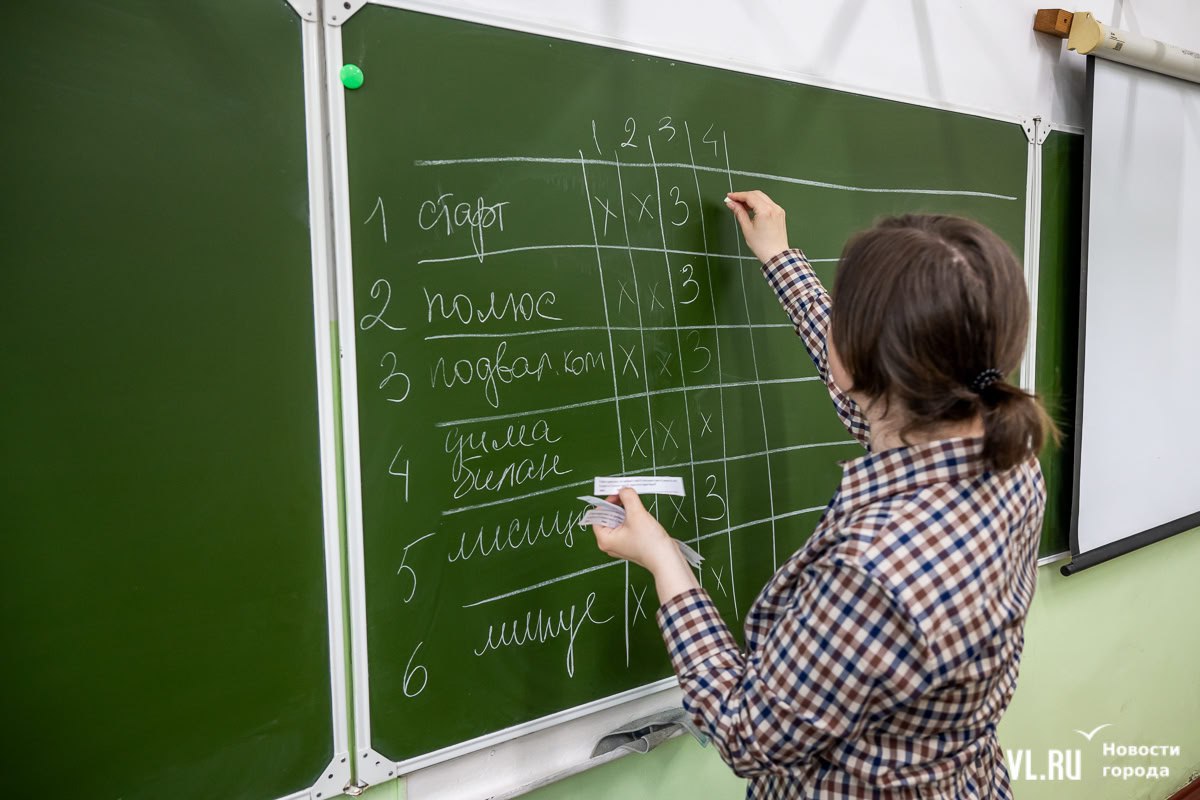 1 2 3 4
1 старт x x 3
2 полюс x x 3
3 подвал.ком x x 3
дима x x x
4 билан
5 x 3
минус x x
6
VL.RU Новости
города